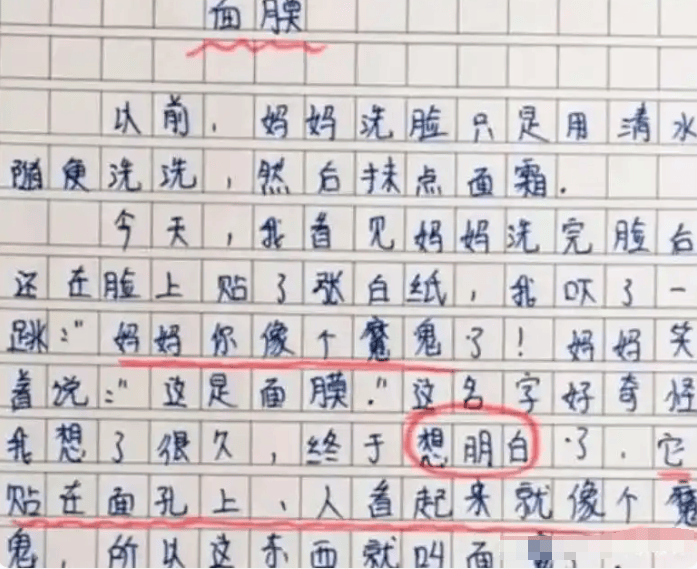 面膜
以前，妈妈洗脸只是用清水
随便洗洗，然后抹点面霜．
今天，我看见妈妈洗完脸后
还在脸上贴了张白纸，我吓了一
跳："妈妈你像个魔鬼了！妈妈笑
着说："这是面膜．"这名字好奇怪
我想了很久，终于想明白了．它
贴在面孔上、人看起来就像个魔
鬼，所以这东西就叫面